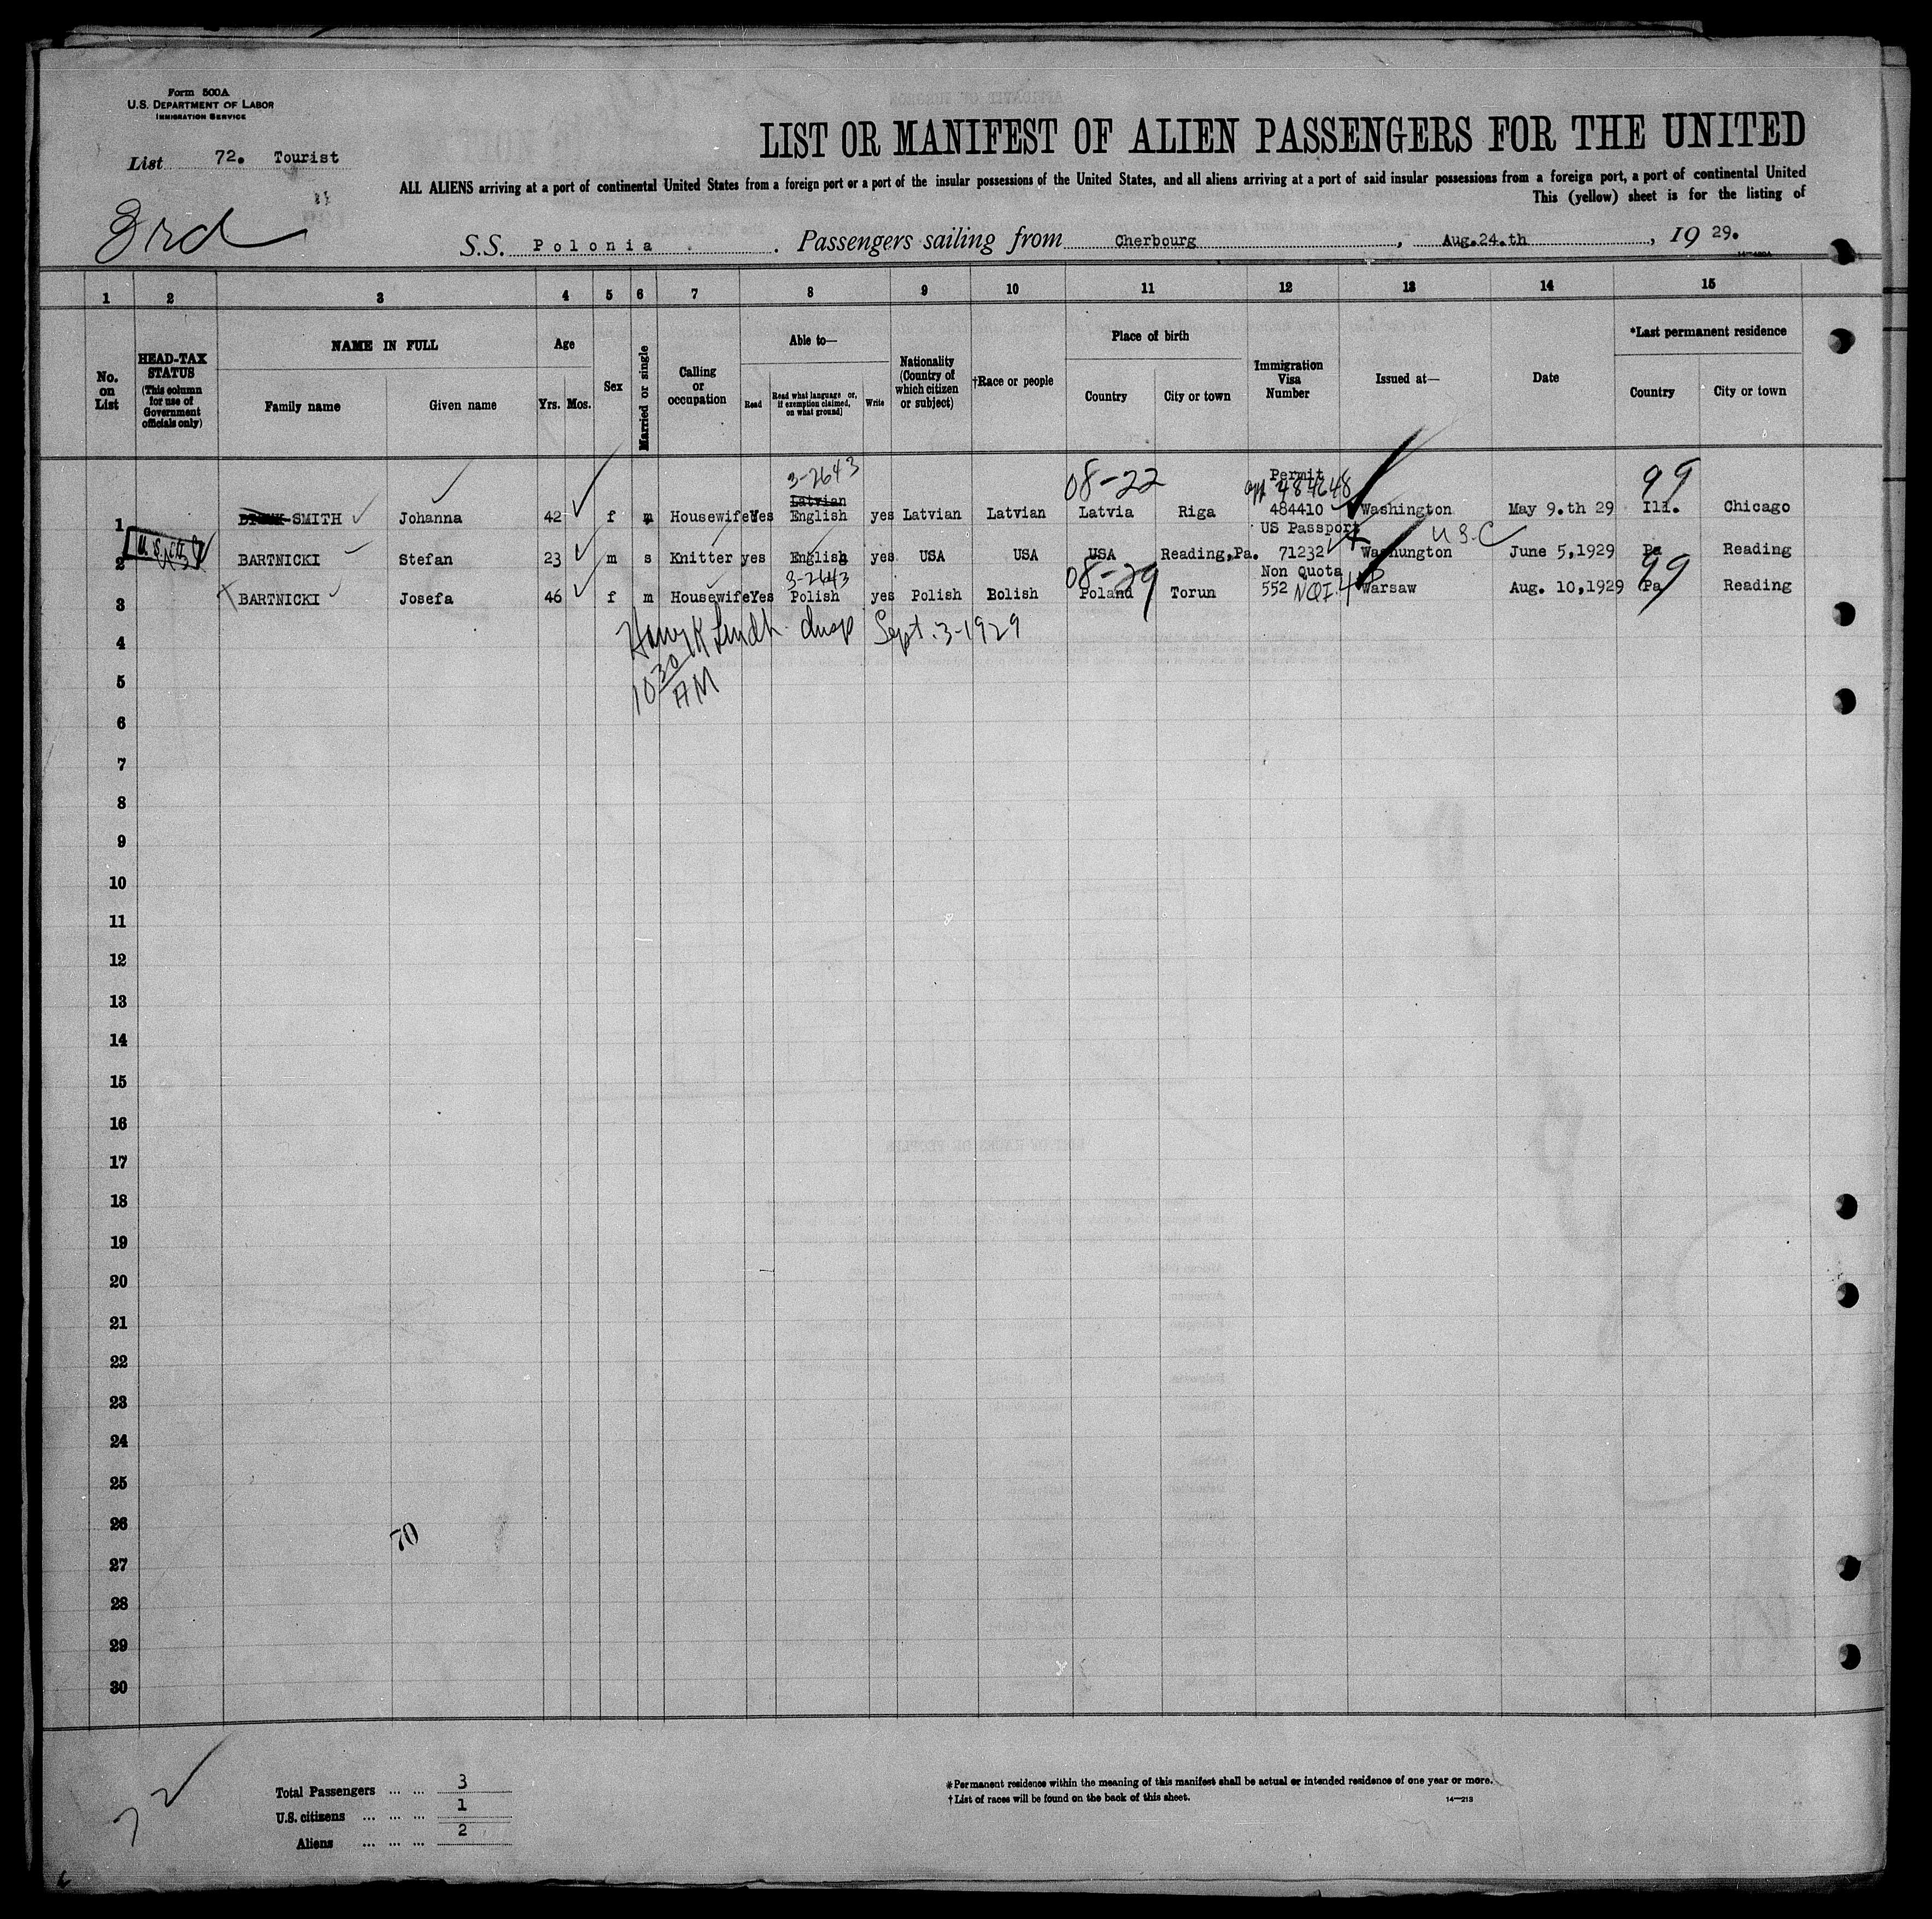 Form 500A
U.S. DEPARTMENT OF LABOR
IMMIGRATION SERVICE
List 72. Tourist
3rd
LIST OR MANIFEST OF ALIEN PASSENGERS FOR THE UNITED
ALL ALIENS arriving at a port of continental United States from a foreign port or a port of the insular possessions of the United States, and all aliens arriving at a port of said insular possessions from a foreign port, a port of continental United
This (yellow) sheet is for the listing of
S.S. Polonia . Passengers sailing from Cherbourg , Aug.24.th , 19 29.
1 2 3 4 5 6 7 8 9 10 11 12 13 14 15
No. on List
HEAD-TAX STATUS (This column for use of Government officials only)
NAME IN FULL
Family name Given name
Age
Yrs. Mos.
Sex
Married or single
Calling or occupation
Able to—
Read
Read what language or, if exemption claimed, on what ground]
Write
Nationality (Country of which citizen or subject)
†Race or people
Place of birth
Country City or town
Immigration Visa Number
Issued at—
Date
*Last permanent residence
Country City or town
3-2643 08-22 Permit 99
Latvian 484648
1 SMITH Johanna 42 f m Housewife Yes English yes Latvian Latvian Latvia Riga 484410 Washington May 9.th 29 Ill. Chicago
US Passport U.S.C
2 BARTNICKI Stefan 23 m s Knitter yes English yes USA USA USA Reading,Pa. 71232 Washungton June 5,1929 Pa Reading
3-2643 08-29 Non Quota 99
3 BARTNICKI Josefa 46 f m Housewife Yes Polish yes Polish Bolish Poland Torun 552 NQI Warsaw Aug. 10,1929 Pa Reading
4 Sept. 3-1929
10 30 AM
5
6
7
8
9
10
11
12
13
14
15
16
17
18
19
20
21
22
23
24
25
26 70
27
28
29
30
72
Total Passengers ... ... 3
U.S. citizens ... ... ... 1
Aliens ... ... ... 2
*Permanent residence within the meaning of this manifest shall be actual or intended residence of one year or more.
†List of races will be found on the back of this sheet.
14—213